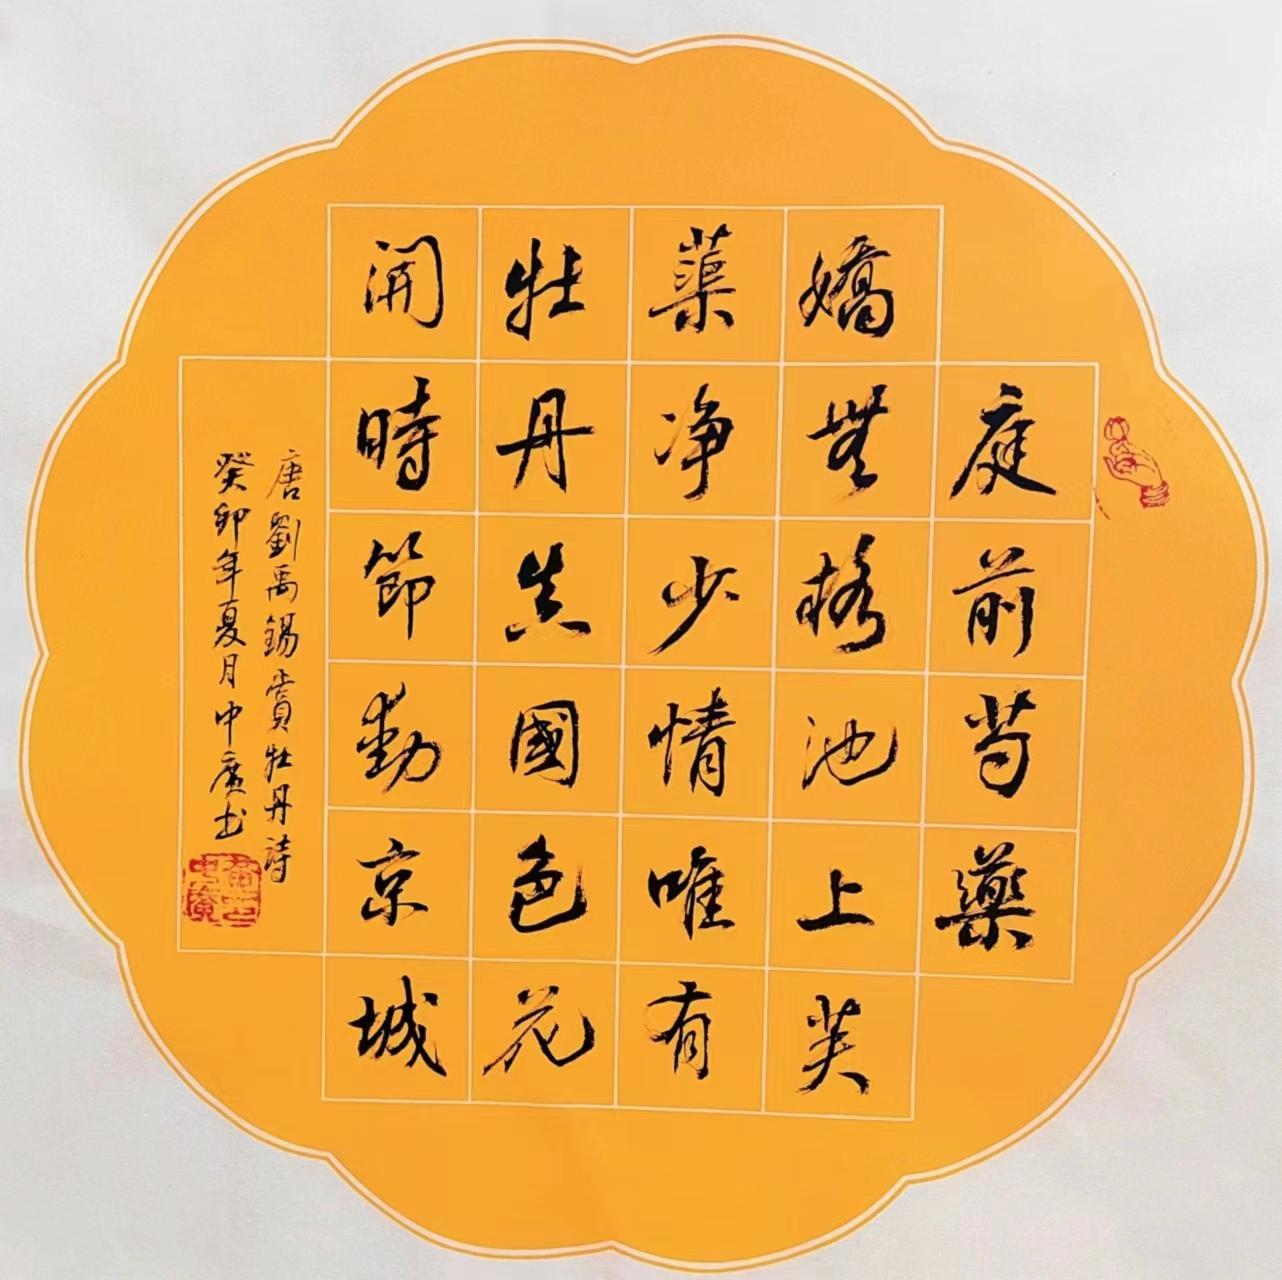 庭前芍藥
嬌無格池上芙
蕖净少情唯有
牡丹真國色花
開時節動京城
唐劉禹錫賞牡丹詩
癸卯年夏月中廣書